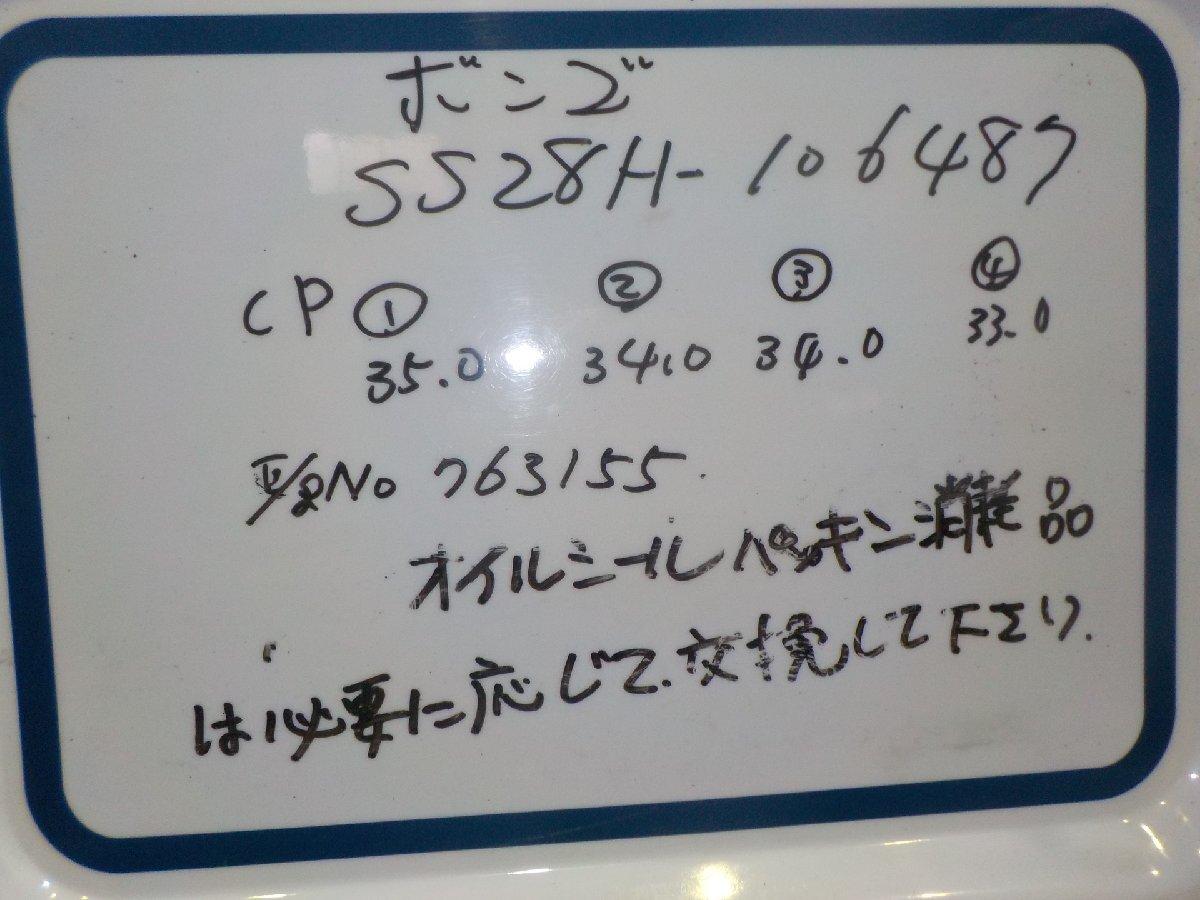 ボンゴ
SS28H-106487
CP ① ② ③ ④
35.0 34.0 34.0 33.0
No 763155
オイルシールパッキン消耗品
は必要に応じて交換して下さい